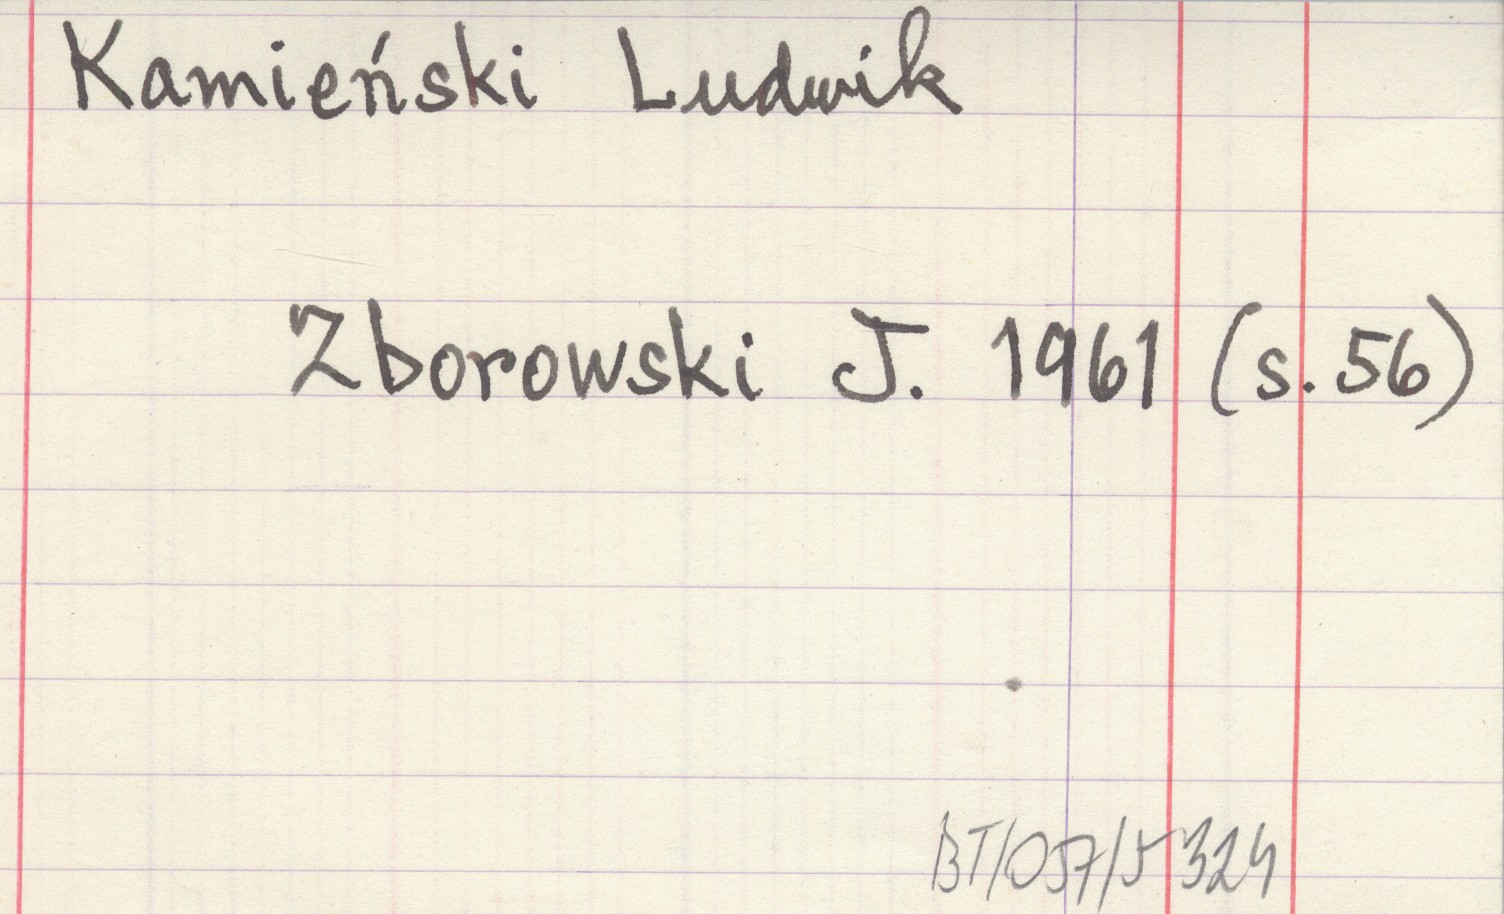 Kamieński Ludwik
Zborowski J. 1961 (s. 56)
BT/057/5324